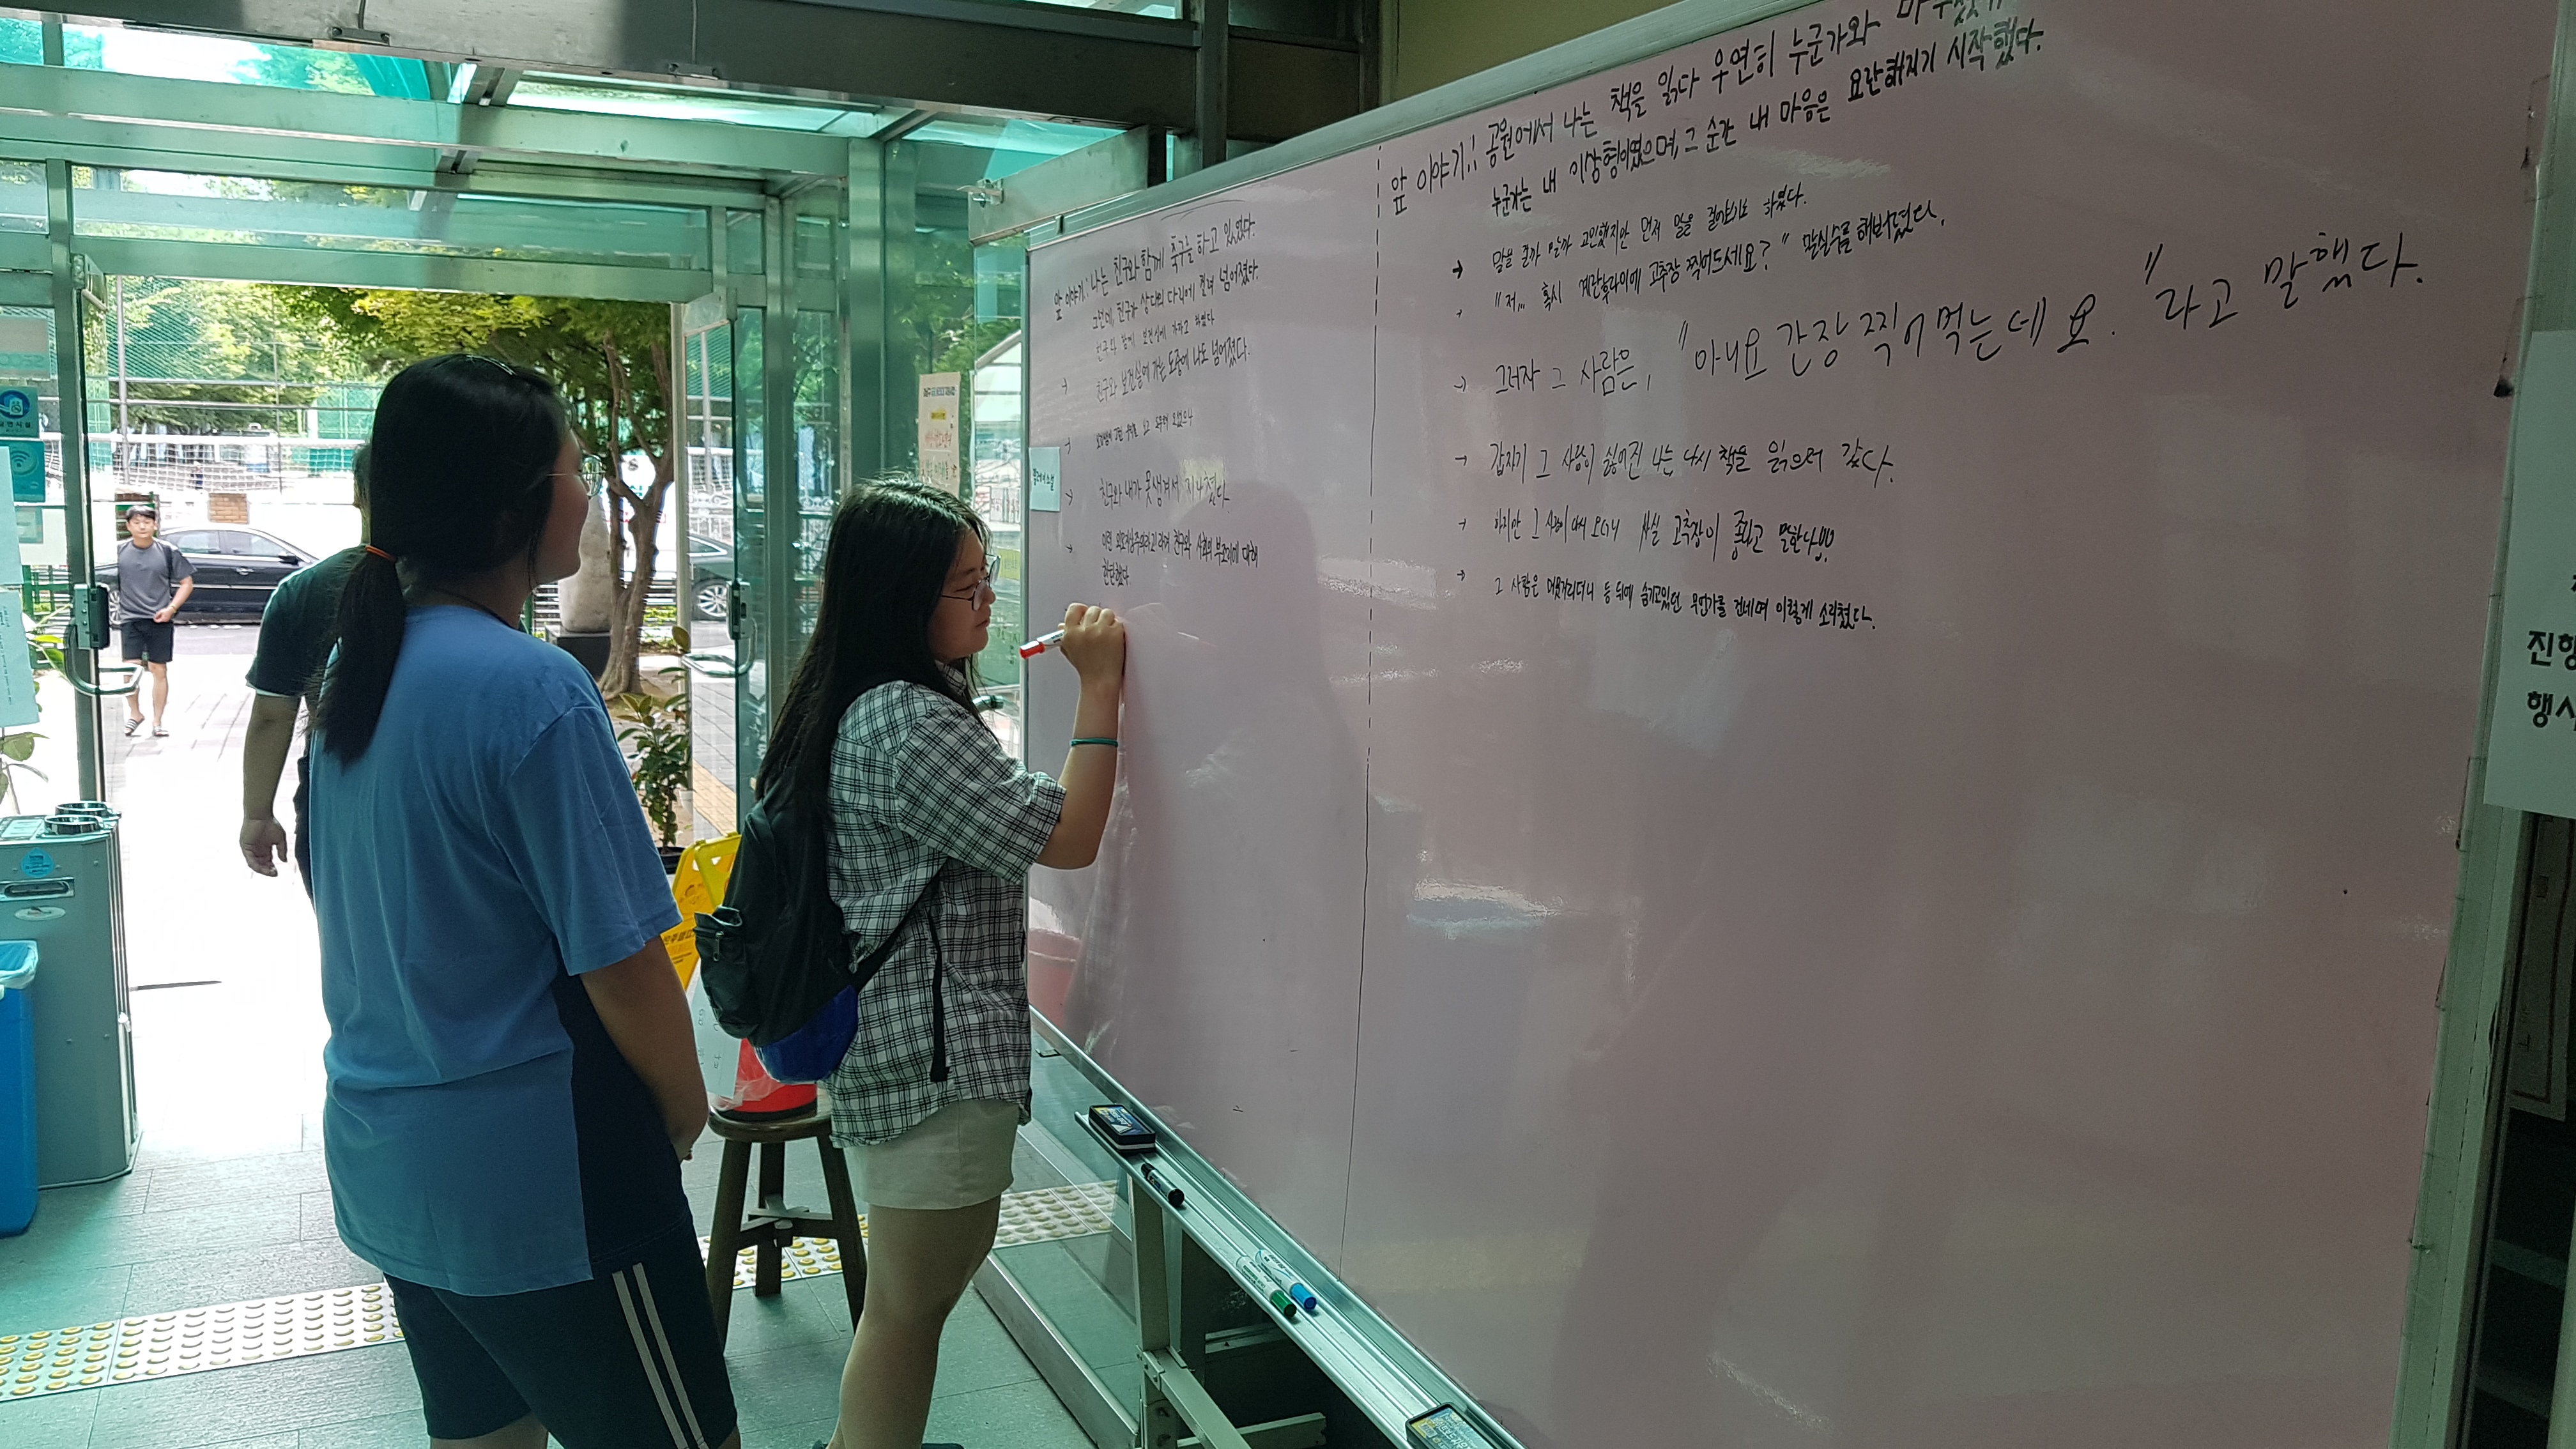 앞 이야기: 나는 친구와 함께 축구를 하고 있었다.
그런데, 친구가 상대의 다리에 걸려 넘어졌다.
친구와 함께 보건실에 가자고 하였다
→ 친구와 보건실에 가는 도중에 나도 넘어졌다.
→
→ 친구와 내가 못생겨서 지나쳤다.
→ 이런 친구와 사회의 부조리에 대해
한탄했다.
앞 이야기: 공원에서 나는 책을 읽다 우연히 누군가와
누군가는 내 이상형이였으며, 그 순간 내 마음은 요란해지기 시작했다.
→ 말을 걸까 말까 고민했지만 먼저 말을 걸어보기로 하였다.
"저... 혹시 계란후라이에 고추장 찍어드세요?" 말실수를 해버렸다.
→ 그러자 그 사람은, "아니요 간장 찍어먹는데요." 라고 말했다.
→ 갑자기 그 사람이 싫어진 나는 다시 책을 읽으러 갔다.
→ 하지만 그 사람이 다시 오더니 사실 고추장이 좋다고 말한다!!!
→ 그 사람은 머뭇거리더니 등 뒤에 숨기고있던 무언가를 건네며 이렇게 소리쳤다.
진행
행사